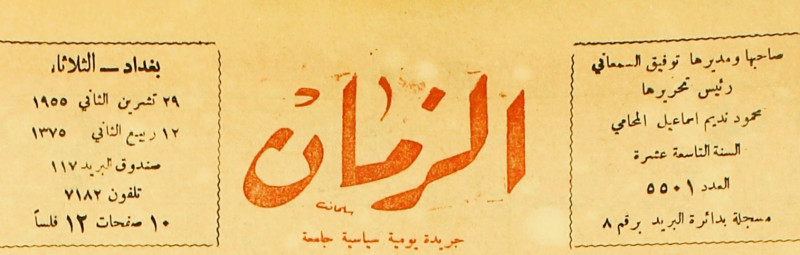 صاحبها ومديرها توفيق السمعاني
رئيس تحريرها
محمود نديم اسماعيل المحامي
السنة التاسعة عشرة
العدد ٥٥٠١
مسجلة بدائرة البريد برقم ٨
الزمان
سلمان
جريدة يومية سياسية جامعة
بغداد — الثلاثاء
٢٩ تشرين الثاني ١٩٥٥
١٢ ربيع الثاني ١٣٧٥
صندوق البريد ١١٧
تلفون ٧١٨٢
١٠ صفحات ١٢ فلساً